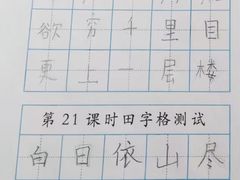 欲穷千里目
更上一层楼
第21课时田字格测试
白日依山尽